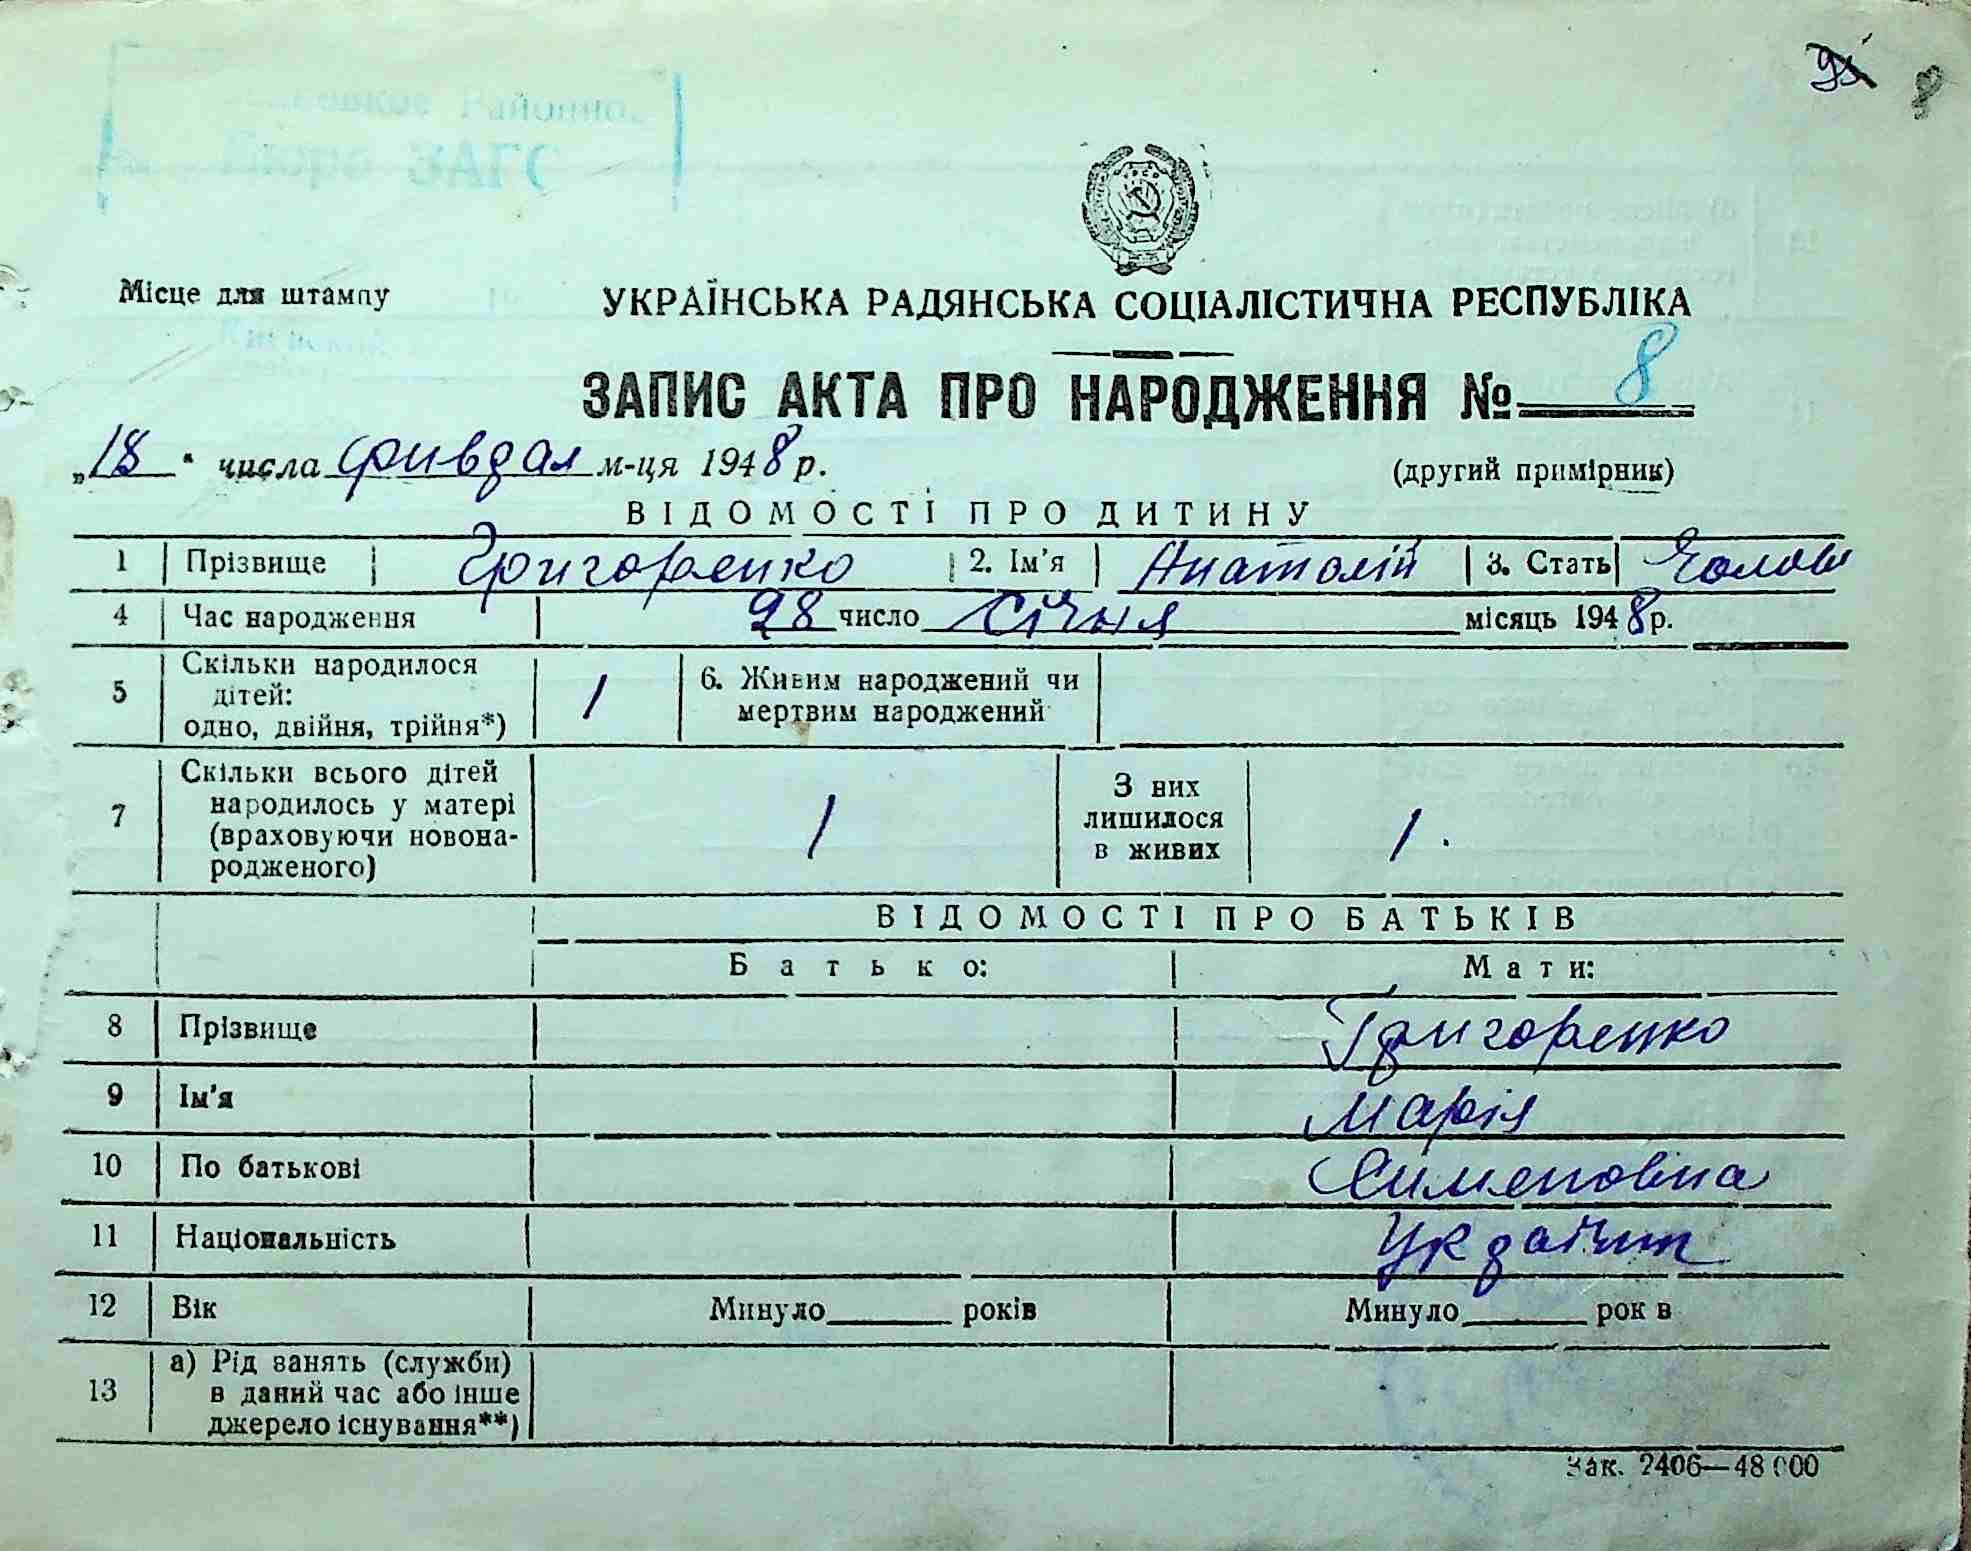 Районно
Бюро ЗАГС
Місце для штампу
УКРАЇНСЬКА РАДЯНСЬКА СОЦІАЛІСТИЧНА РЕСПУБЛІКА
ЗАПИС АКТА ПРО НАРОДЖЕННЯ № 8
„18" числа м-ця 1948 р.
(другий примірник)
ВІДОМОСТІ ПРО ДИТИНУ
1 Прізвище Григоренко 2. Ім'я Анатолій 3. Стать Чолов
4 Час народження 28 число Січня місяць 1948 р.
5 Скільки народилося дітей: одно, двійня, трійня*) 1 6. Живим народжений чи мертвим народжений
7 Скільки всього дітей народилось у матері (враховуючи новонародженого) 1 З них лишилося в живих 1.
ВІДОМОСТІ ПРО БАТЬКІВ
Батько: Мати:
8 Прізвище Григоренко
9 Ім'я Марія
10 По батькові Симеповіна
11 Національність Україн
12 Вік Минуло років Минуло рок в
13 а) Рід занять (служби) в даний час або інше джерело існування**)
Зак. 2406—48 000